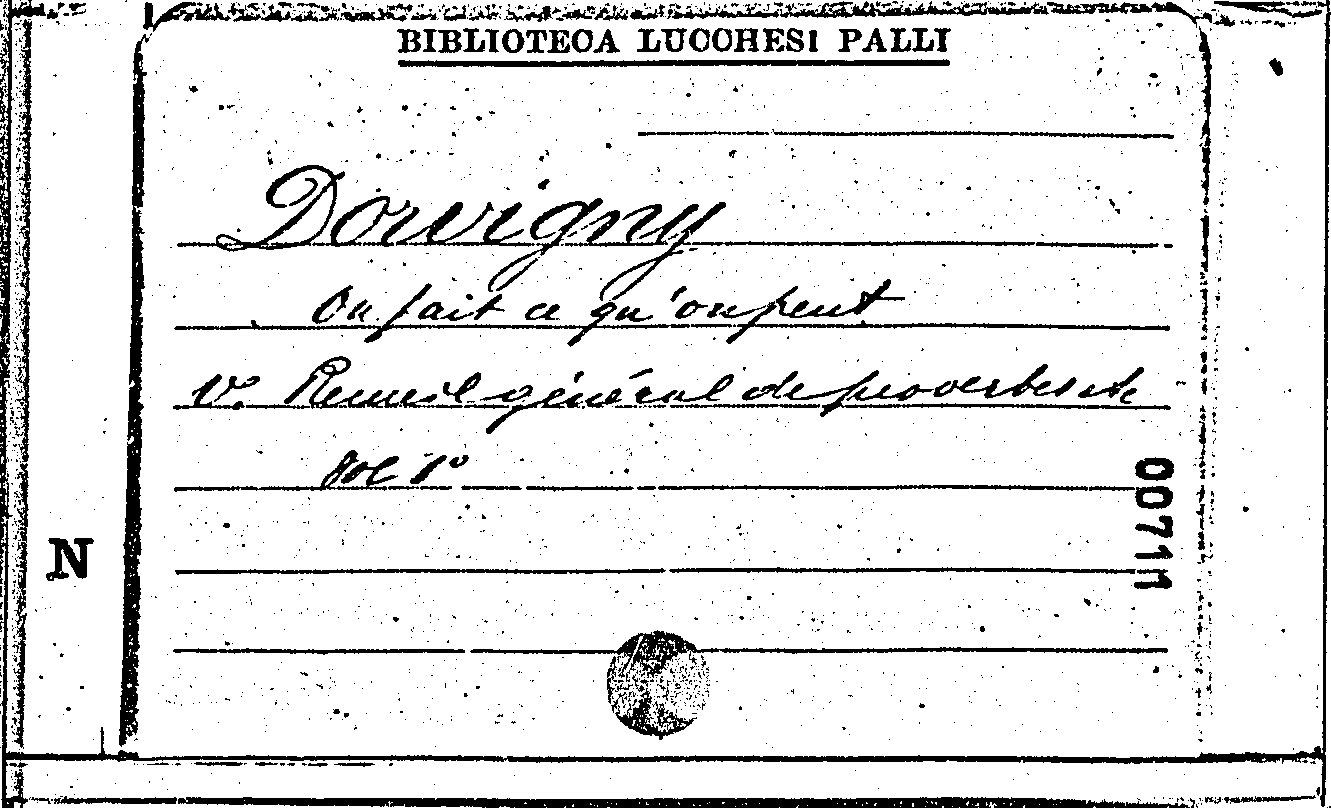 BIBLIOTECA LUCCHESI PALLI
Dorvigny
On fait ce qu'on peut
V. Recueil général de proverbes etc
Vol 1º
00711
N